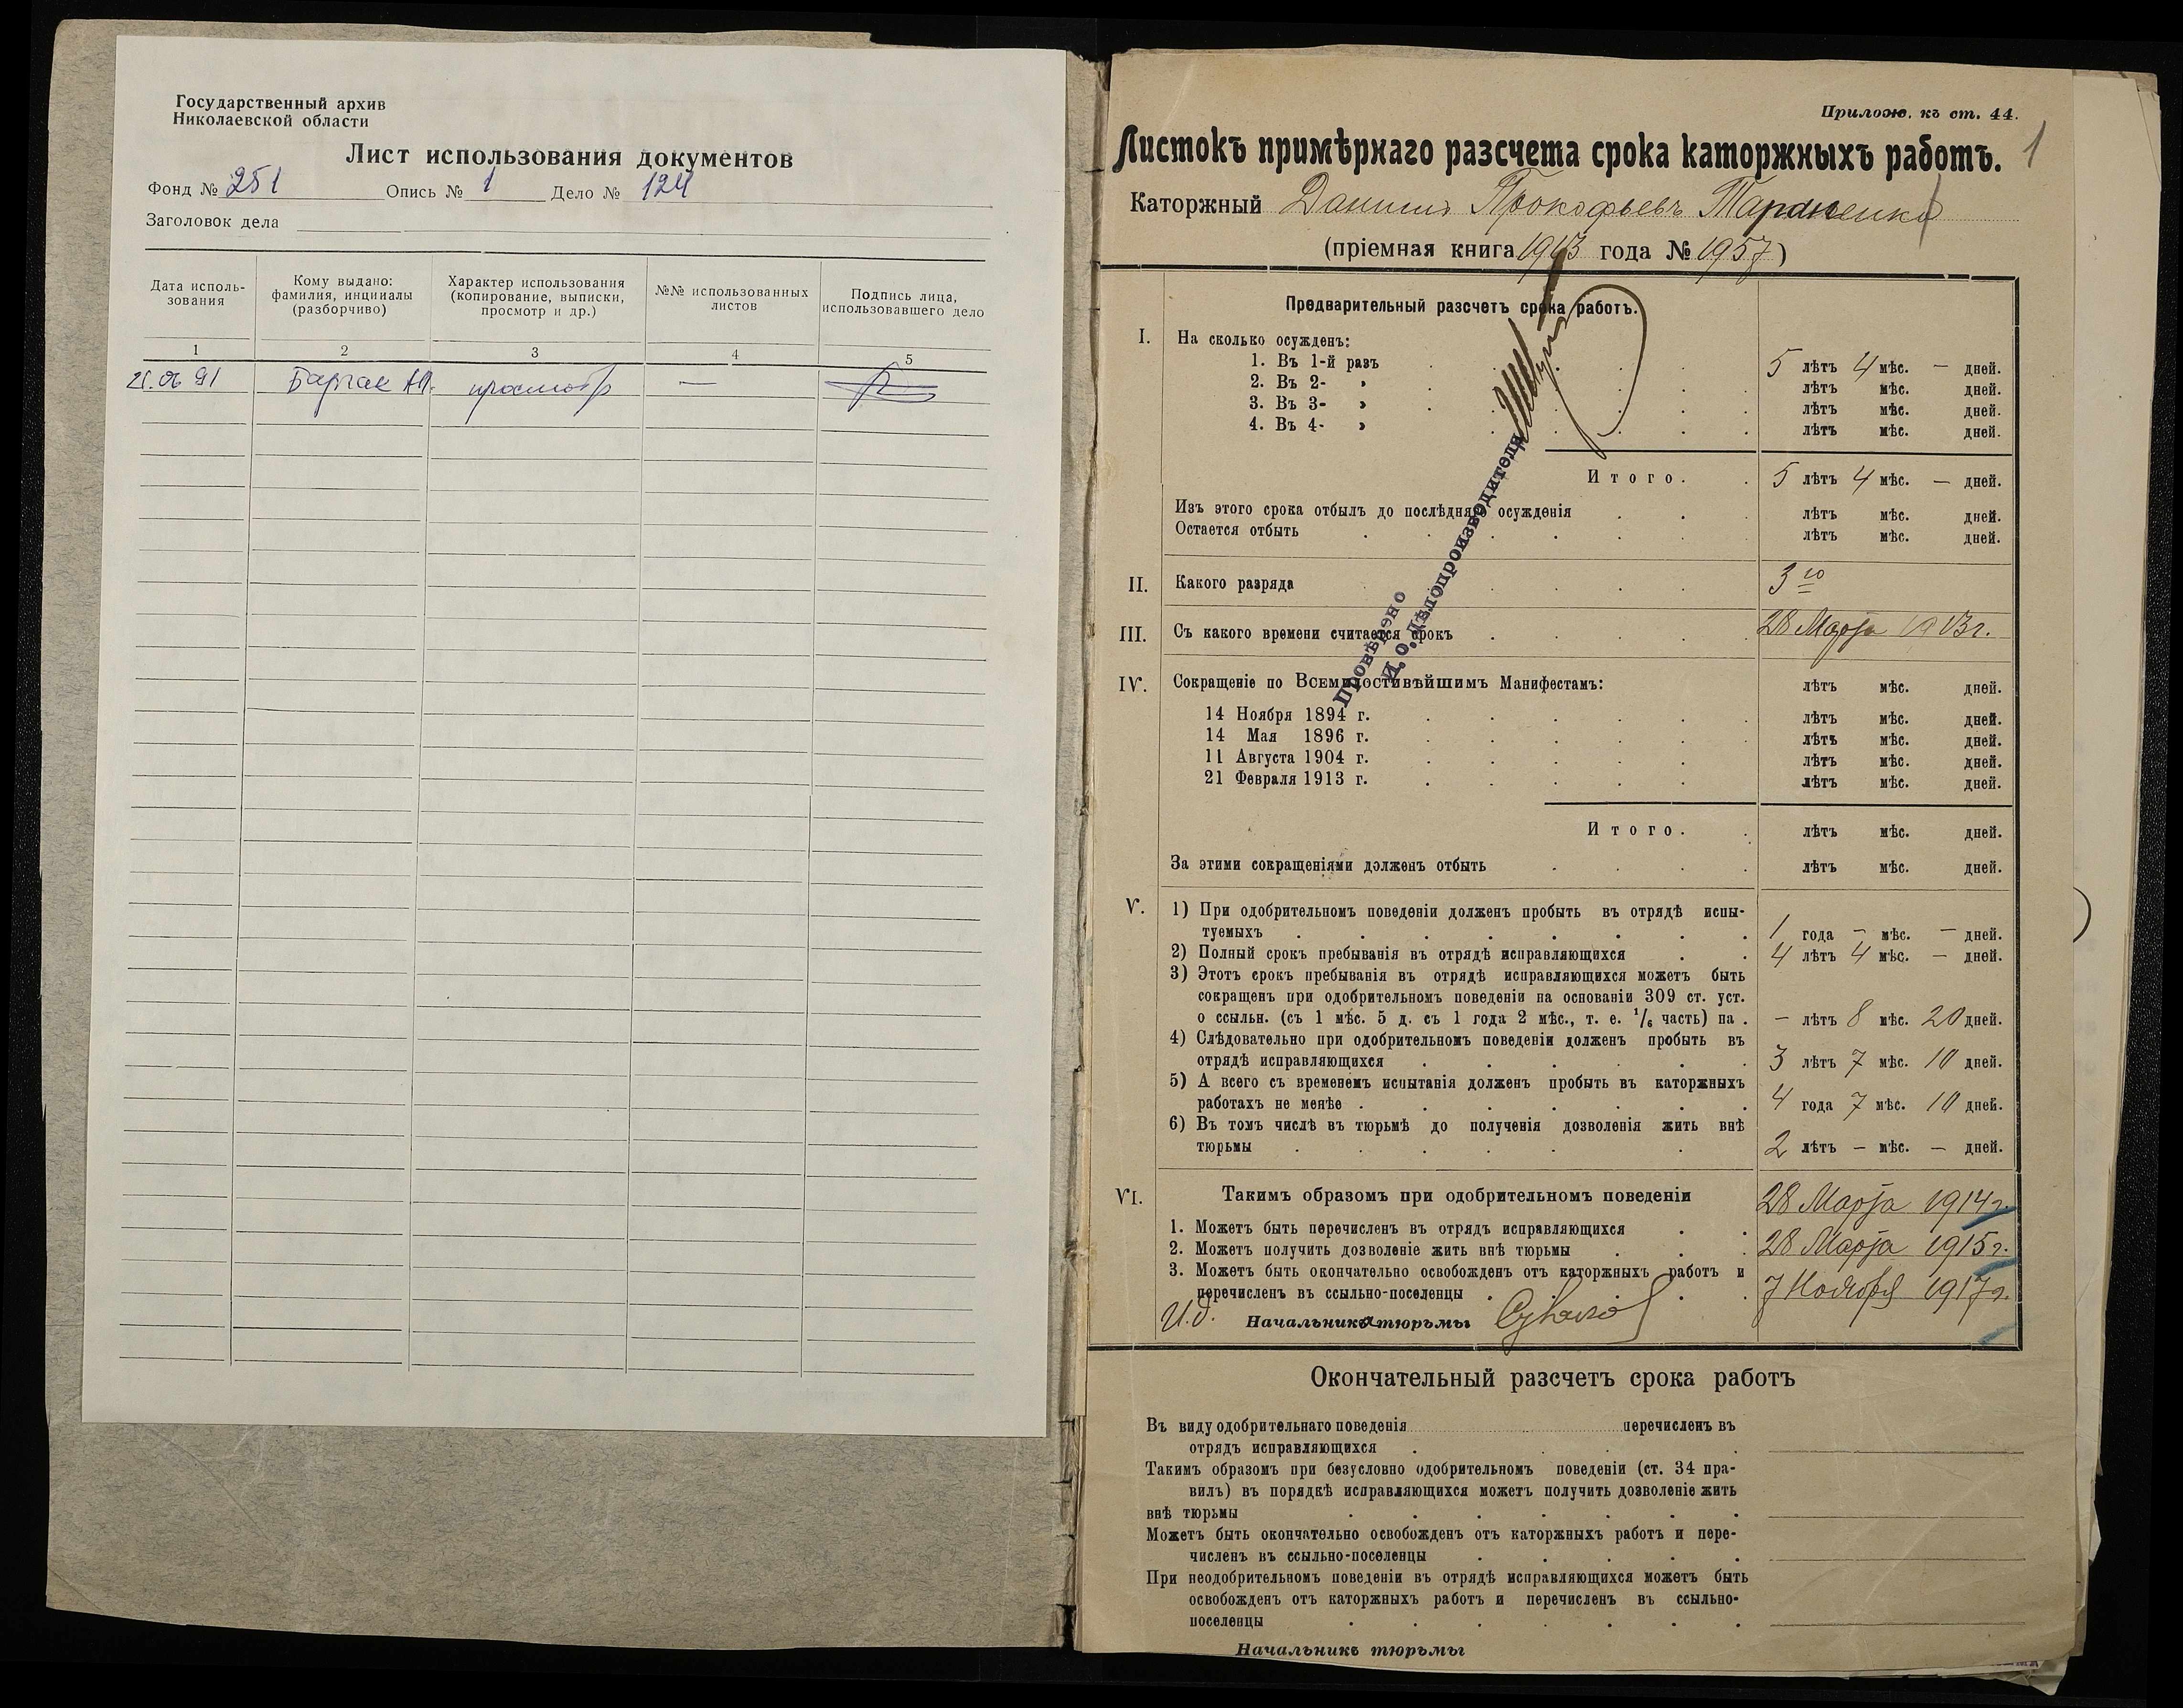 Государственный архив
Николаевской области
Лист использования документов
Фонд № 251 Опись № 1 Дело № 124
Заголовок дела
Дата исполь-
зования
Кому выдано:
фамилия, инциналы
(разборчиво)
Характер использования
(копирование, выписки,
просмотр и др.)
№№ использованных
листов
Подпись лица,
использовавшего дело
1 2 3 4 5
21.06 91 просмотр —
Прилож. къ ст. 44.
1
Листокъ примѣрнаго разсчета срока каторжныхъ работъ.
Каторжный Данило Прокофьевъ Тараненко
(пріемная книга 1913 года № 1957)
Предварительный разсчетъ срока работъ.
I. На сколько осужденъ:
1. Въ 1-й разъ 5 лѣтъ 4 мѣс. — дней.
2. Въ 2- » лѣтъ мѣс. дней.
3. Въ 3- » лѣтъ мѣс. дней.
4. Въ 4- » лѣтъ мѣс. дней.
Итого. 5 лѣтъ 4 мѣс. — дней.
Изъ этого срока отбылъ до послѣдняго осужденія лѣтъ мѣс. дней.
Остается отбыть лѣтъ мѣс. дней.
II. Какого разряда 3го
III. Съ какого времени считается срокъ 28 Марта 1913 г.
Провѣрено
И. о. дѣлопроизводителя
IV. Сокращеніе по Всемилостивѣйшимъ Манифестамъ: лѣтъ мѣс. дней.
14 Ноября 1894 г. лѣтъ мѣс. дней.
14 Мая 1896 г. лѣтъ мѣс. дней.
11 Августа 1904 г. лѣтъ мѣс. дней.
21 Февраля 1913 г. лѣтъ мѣс. дней.
Итого. лѣтъ мѣс. дней.
За этими сокращеніями долженъ отбыть лѣтъ мѣс. дней.
V. 1) При одобрительномъ поведеніи долженъ пробыть въ отрядѣ испы-
туемыхъ 1 года — мѣс. — дней.
2) Полный срокъ пребыванія въ отрядѣ исправляющихся 4 лѣтъ 4 мѣс. — дней.
3) Этотъ срокъ пребыванія въ отрядѣ исправляющихся можетъ быть
сокращенъ при одобрительномъ поведеніи на основаніи 309 ст. уст.
о ссыльн. (съ 1 мѣс. 5 д. съ 1 года 2 мѣс., т. е. 1/6 часть) на — лѣтъ 8 мѣс. 20 дней.
4) Слѣдовательно при одобрительномъ поведеніи долженъ пробыть въ
отрядѣ исправляющихся 3 лѣтъ 7 мѣс. 10 дней.
5) А всего съ временемъ испытанія долженъ пробыть въ каторжныхъ
работахъ не менѣе 4 года 7 мѣс. 10 дней.
6) Въ томъ числѣ въ тюрьмѣ до полученія дозволенія жить внѣ
тюрьмы 2 лѣтъ — мѣс. — дней.
VI. Такимъ образомъ при одобрительномъ поведеніи
1. Можетъ быть перечисленъ въ отрядъ исправляющихся 28 Марта 1914 г.
2. Можетъ получить дозволеніе жить внѣ тюрьмы 28 Марта 1915 г.
3. Можетъ быть окончательно освобожденъ отъ каторжныхъ работъ и
перечисленъ въ ссыльно-поселенцы 7 Ноября 1917 г.
И.д. Начальника тюрьмы
Окончательный разсчетъ срока работъ
Въ виду одобрительнаго поведенія перечисленъ въ
отрядъ исправляющихся
Такимъ образомъ при безусловно одобрительномъ поведеніи (ст. 34 пра-
вилъ) въ порядкѣ исправляющихся можетъ получить дозволеніе жить
внѣ тюрьмы
Можетъ быть окончательно освобожденъ отъ каторжныхъ работъ и пере-
численъ въ ссыльно-поселенцы
При неодобрительномъ поведеніи въ отрядѣ исправляющихся можетъ быть
освобожденъ отъ каторжныхъ работъ и перечисленъ въ ссыльно-
поселенцы
Начальникъ тюрьмы